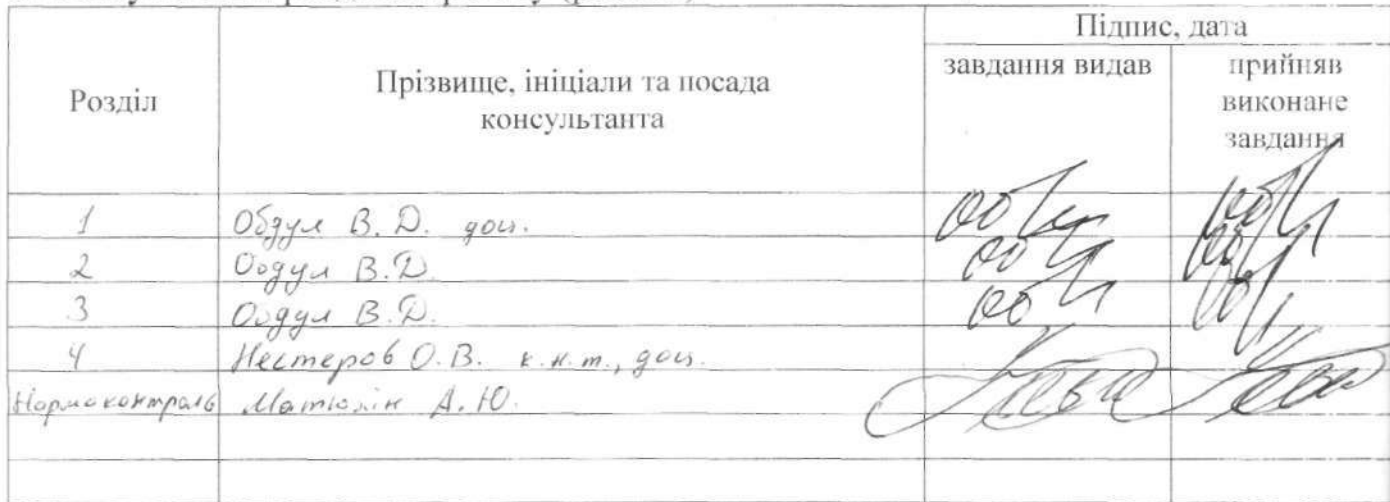 Підпис, дата
Розділ
Прізвище, ініціали та посада
консультанта
завдання видав
прийняв
виконане
завдання
1 Обдул В. Д. доц.
2 Обдул В.Д.
3 Обдул В.Д.
4 Нестеров О.В. к.н.т., доц.
Нормоконтроль Матюхін А.Ю.